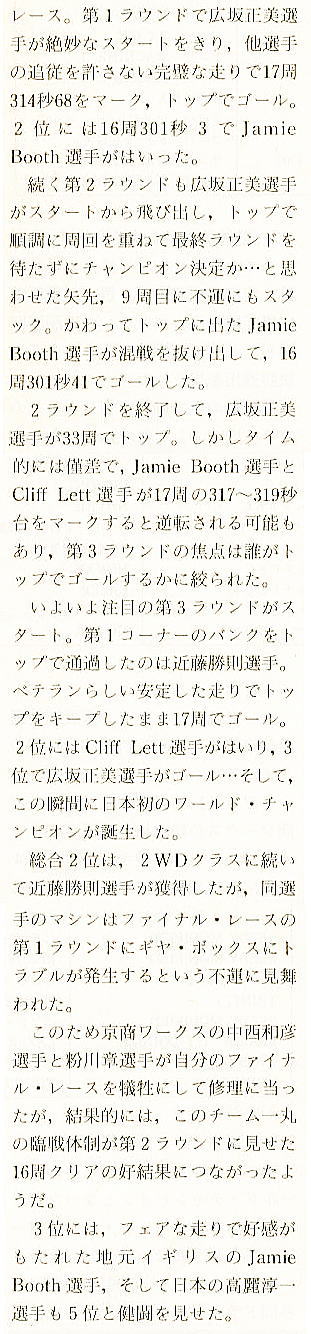 レース。第1ラウンドで広坂正美選
手が絶妙なスタートをきり，他選手
の追従を許さない完璧な走りで17周
314秒68をマーク，トップでゴール。
2位には16周301秒3でJamie
Booth選手がはいった。
続く第2ラウンドも広坂正美選手
がスタートから飛び出し，トップで
順調に周回を重ねて最終ラウンドを
待たずにチャンピオン決定か…と思
わせた矢先，9周目に不運にもスタ
ック。かわってトップに出たJamie
Booth選手が混戦を抜け出して，16
周301秒41でゴールした。
2ラウンドを終了して，広坂正美
選手が33周でトップ。しかしタイム
的には僅差で，Jamie Booth選手と
Cliff Lett選手が17周の317〜319秒
台をマークすると逆転される可能も
あり，第3ラウンドの焦点は誰がト
ップでゴールするかに絞られた。
いよいよ注目の第3ラウンドがス
タート。第1コーナーのバンクをト
ップで通過したのは近藤勝則選手。
ベテランらしい安定した走りでトッ
プをキープしたまま17周でゴール。
2位にはCliff Lett選手がはいり，3
位で広坂正美選手がゴール…そして，
この瞬間に日本初のワールド・チャ
ンピオンが誕生した。
総合2位は，2WDクラスに続い
て近藤勝則選手が獲得したが，同選
手のマシンはファイナル・レースの
第1ラウンドにギヤ・ボックスにト
ラブルが発生するという不運に見舞
われた。
このため京商ワークスの中西和彦
選手と粉川章選手が自分のファイナ
ル・レースを犠牲にして修理に当っ
たが，結果的には，このチーム一丸
の臨戦体制が第2ラウンドに見せた
16周クリアの好結果につながったよ
うだ。
3位には，フェアな走りで好感が
もたれた地元イギリスのJamie
Booth選手，そして日本の高麗淳一
選手も5位と健闘を見せた。